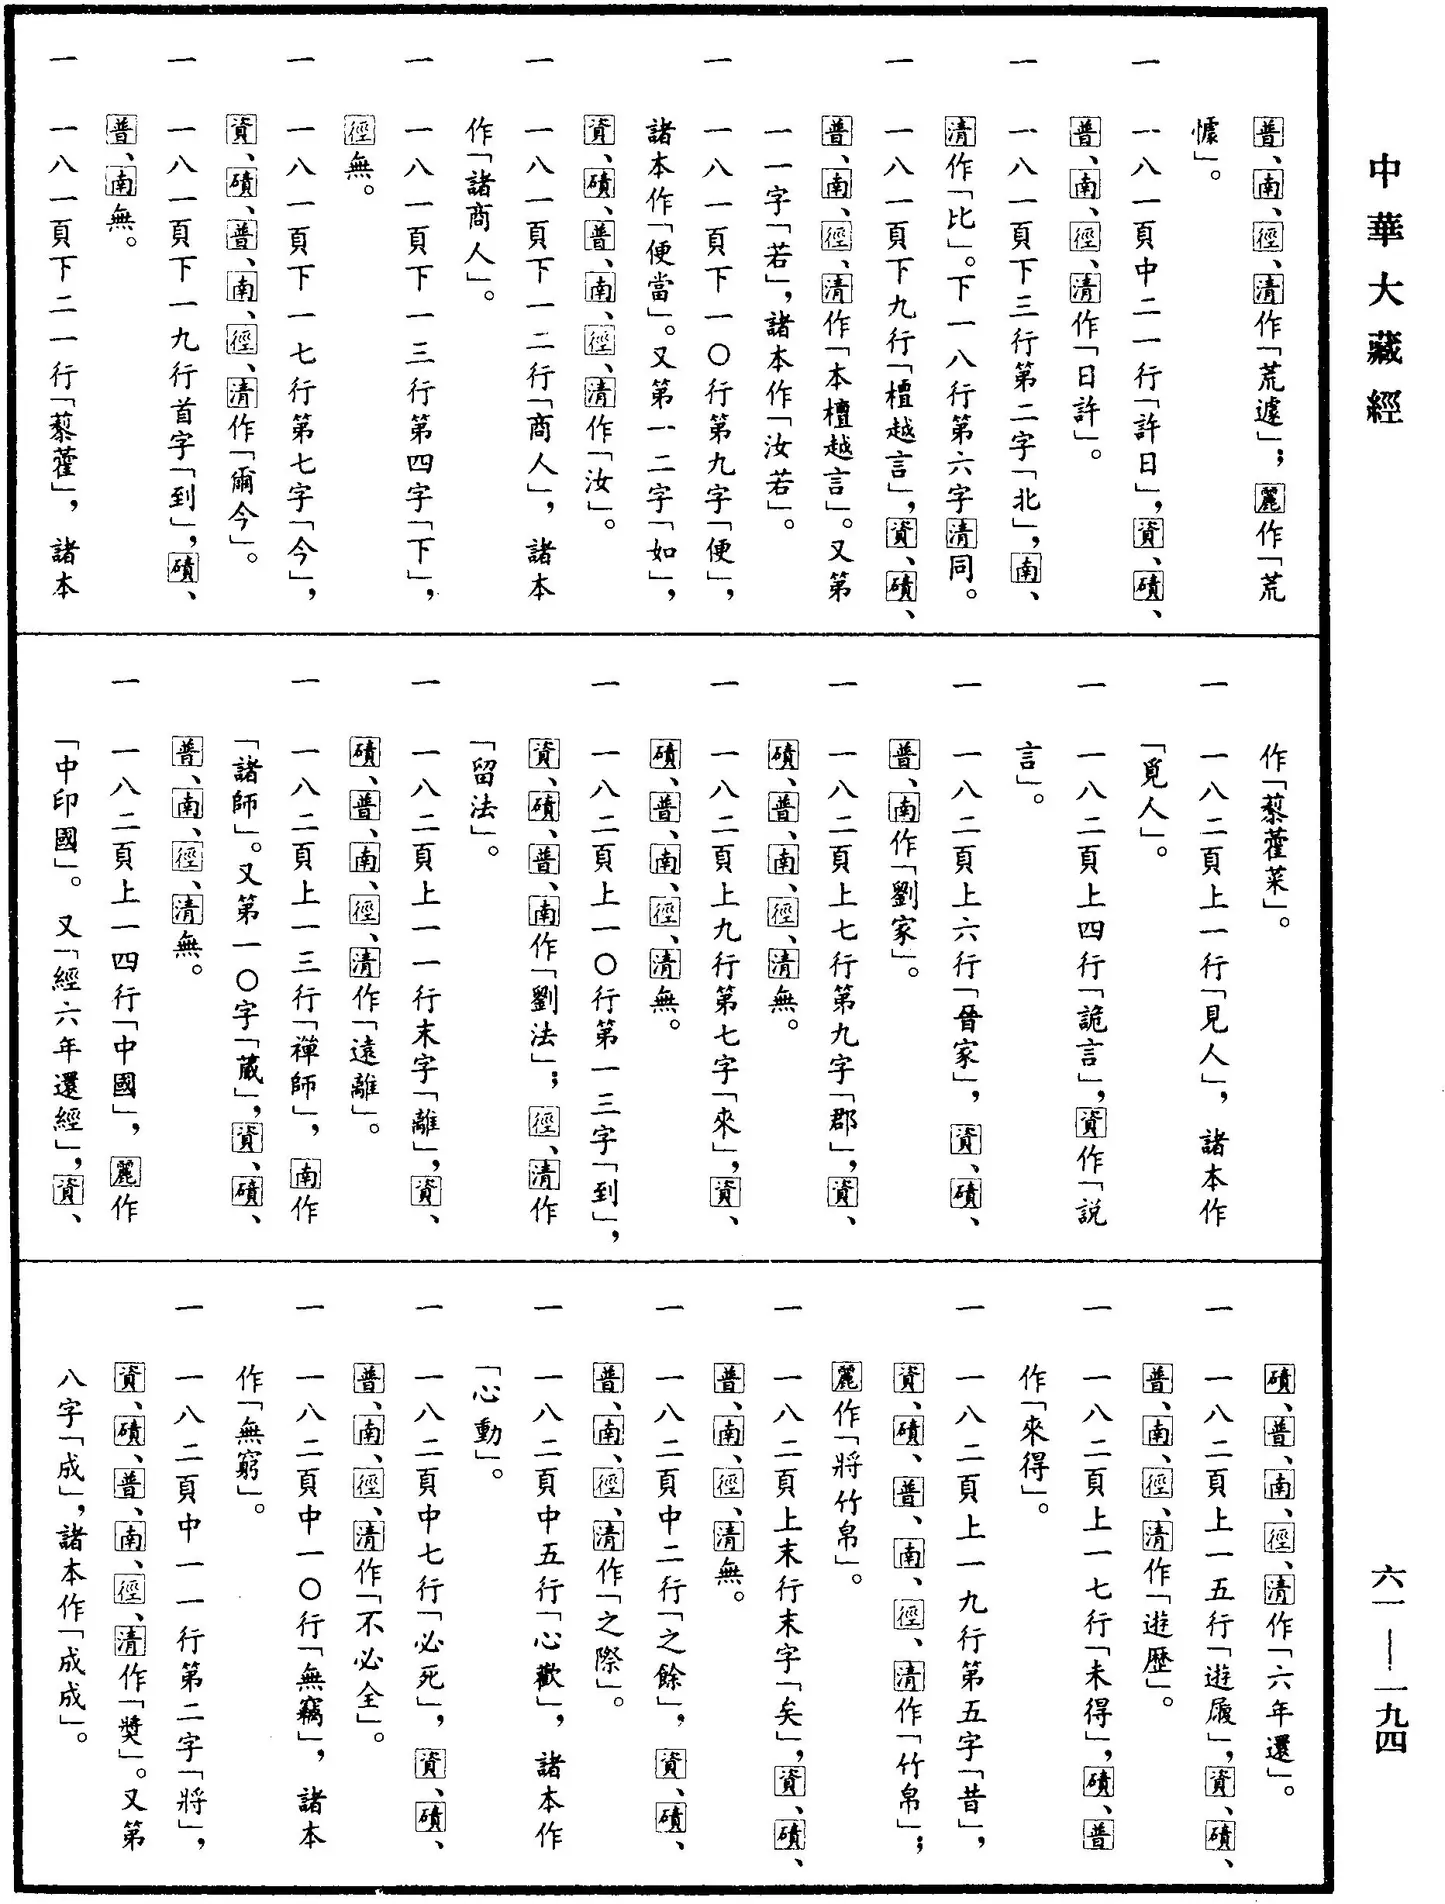 中華大藏經
六一——一九四
普、南、徑、清作「荒遽」；麗作「荒
懅」。
一　一八一頁中二一行「許日」，資、磧、
普、南、徑、清作「日許」。
一　一八一頁下三行第二字「北」，南、
清作「比」。下一八行第六字清同。
一　一八一頁下九行「檀越言」，資、磧、
普、南、徑、清作「本檀越言」。又第
一一字「若」，諸本作「汝若」。
一　一八一頁下一〇行第九字「便」，
諸本作「便當」。又第一二字「如」，
資、磧、普、南、徑、清作「汝」。
一　一八一頁下一二行「商人」，諸本
作「諸商人」。
一　一八一頁下一三行第四字「下」，
徑無。
一　一八一頁下一七行第七字「今」，
資、磧、普、南、徑、清作「爾今」。
一　一八一頁下一九行首字「到」，磧、
普、南無。
一　一八一頁下二一行「藜藿」，諸本
作「藜藿菜」。
一　一八二頁上一行「見人」，諸本作
「覓人」。
一　一八二頁上四行「詭言」，資作「説
言」。
一　一八二頁上六行「晉家」，資、磧、
普、南作「劉家」。
一　一八二頁上七行第九字「郡」，資、
磧、普、南、徑、清無。
一　一八二頁上九行第七字「來」，資、
磧、普、南、徑、清無。
一　一八二頁上一〇行第一三字「到」，
資、磧、普、南作「劉法」；徑、清作
「留法」。
一　一八二頁上一一行末字「離」，資、
磧、普、南、徑、清作「遠離」。
一　一八二頁上一三行「禪師」，南作
「諸師」。又第一〇字「蕆」，資、磧、
普、南、徑、清無。
一　一八二頁上一四行「中國」，麗作
「中印國」。又「經六年還經」，資、
磧、普、南、徑、清作「六年還」。
一　一八二頁上一五行「遊履」，資、磧、
普、南、徑、清作「遊歷」。
一　一八二頁上一七行「未得」，磧、普
作「來得」。
一　一八二頁上一九行第五字「昔」，
資、磧、普、南、徑、清作「竹帛」；
麗作「將竹帛」。
一　一八二頁上末行末字「矣」，資、磧、
普、南、徑、清無。
一　一八二頁中二行「之餘」，資、磧、
普、南、徑、清作「之際」。
一　一八二頁中五行「心歡」，諸本作
「心動」。
一　一八二頁中七行「必死」，資、磧、
普、南、徑、清作「不必全」。
一　一八二頁中一〇行「無竊」，諸本
作「無窮」。
一　一八二頁中一一行第二字「將」，
資、磧、普、南、徑、清作「獎」。又第
八字「成」，諸本作「成成」。